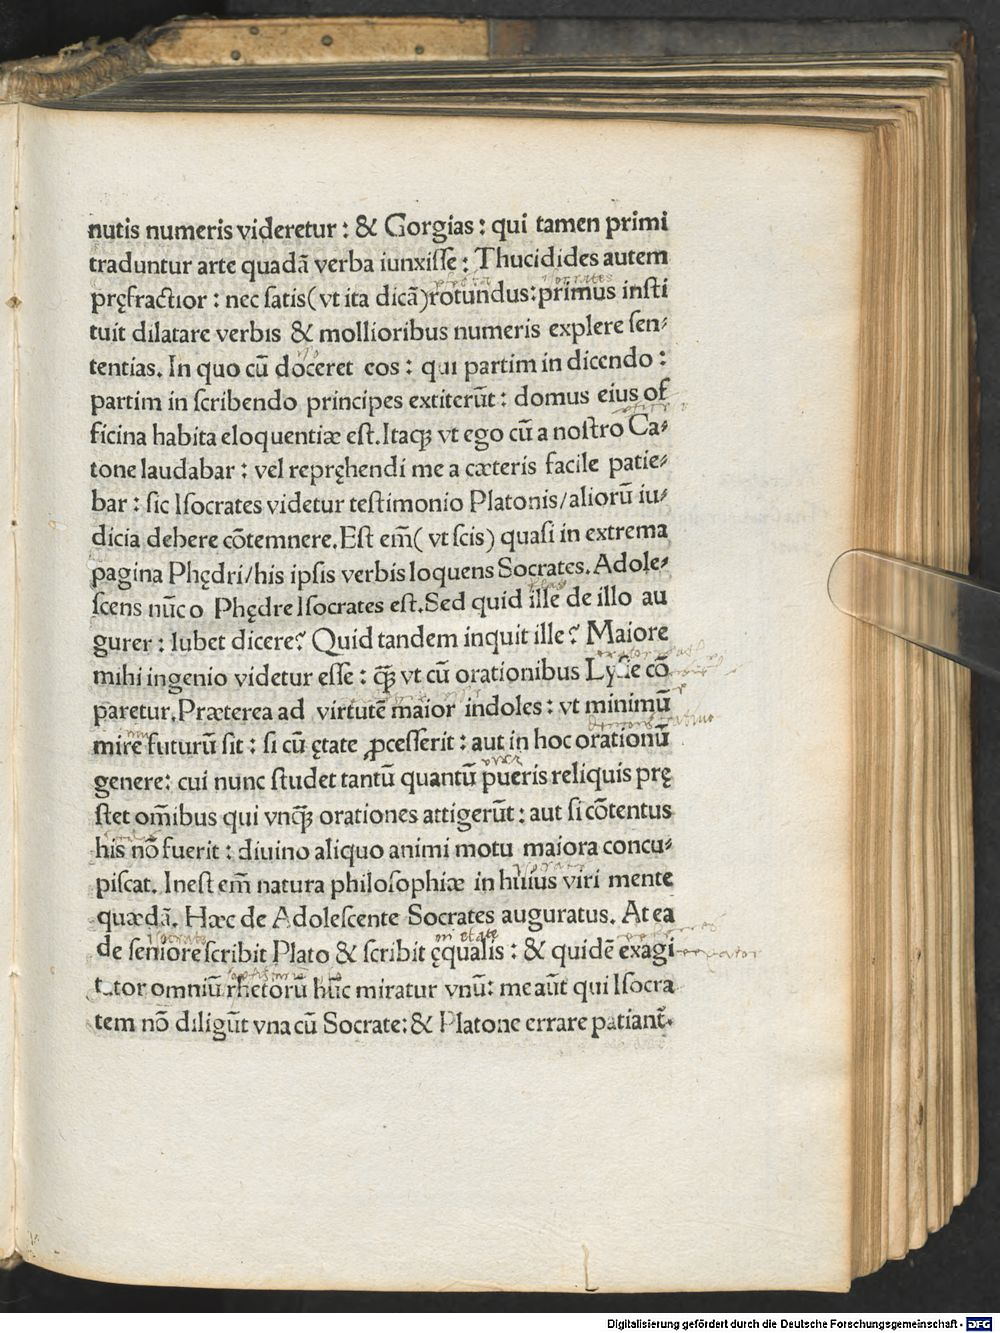 nutis numeris videretur : & Gorgias : qui tamen primi
traduntur arte quadã verba iunxisse : Thucidides autem
pręfractior : nec satis( vt ita dicã)rotundus:primus insti
tuit dilatare verbis & mollioribus numeris explere sen⸗
tentias. In quo cũ doceret eos : qui partim in dicendo :
partim in scribendo principes extiterũt : domus eius of
ficina habita eloquentiæ est.Itaqꝫ vt ego cũ a nostro Ca⸗
tone laudabar : vel repręhendi me a cæteris facile patie⸗
bar : sic Isocrates videtur testimonio Platonis/aliorũ iu⸗
dicia debere cõtemnere.Est em̃( vt scis) quasi in extrema
pagina Phędri/his ipsis verbis loquens Socrates. Adole⸗
scens nũc o Phędre Isocrates est.Sed quid ille de illo au
gurer : lubet dicere? Quid tandem inquit ille? Maiore
mihi ingenio videtur esse : q̃ꝫ vt cũ orationibus Lysie cõ
paretur.Præterea ad virtutẽ maior indoles : vt minimũ
mire futurũ sit : si cũ ętate ꝓcesserit : aut in hoc orationũ
genere: cui nunc studet tantũ quantũ pueris reliquis prę
stet om̃ibus qui vnq̃ꝫ orationes attigerũt : aut si cõtentus
his nõ fuerit : diuino aliquo animi motu maiora concu⸗
piscat. Inest em̃ natura philosophiæ in huius viri mente
quædã. Hæc de Adolescente Socrates auguratus. At ea
de seniore scribit Plato & scribit ęqualis : & quidẽ exagi
tator omniũ rhetorũ hũc miratur vnũ: me aũt qui Isocra
tem nõ diligũt vna cũ Socrate:& Platone errare patiant̃.
Digitalisierung gefördert durch die Deutsche Forschungsgemeinschaft - DFG